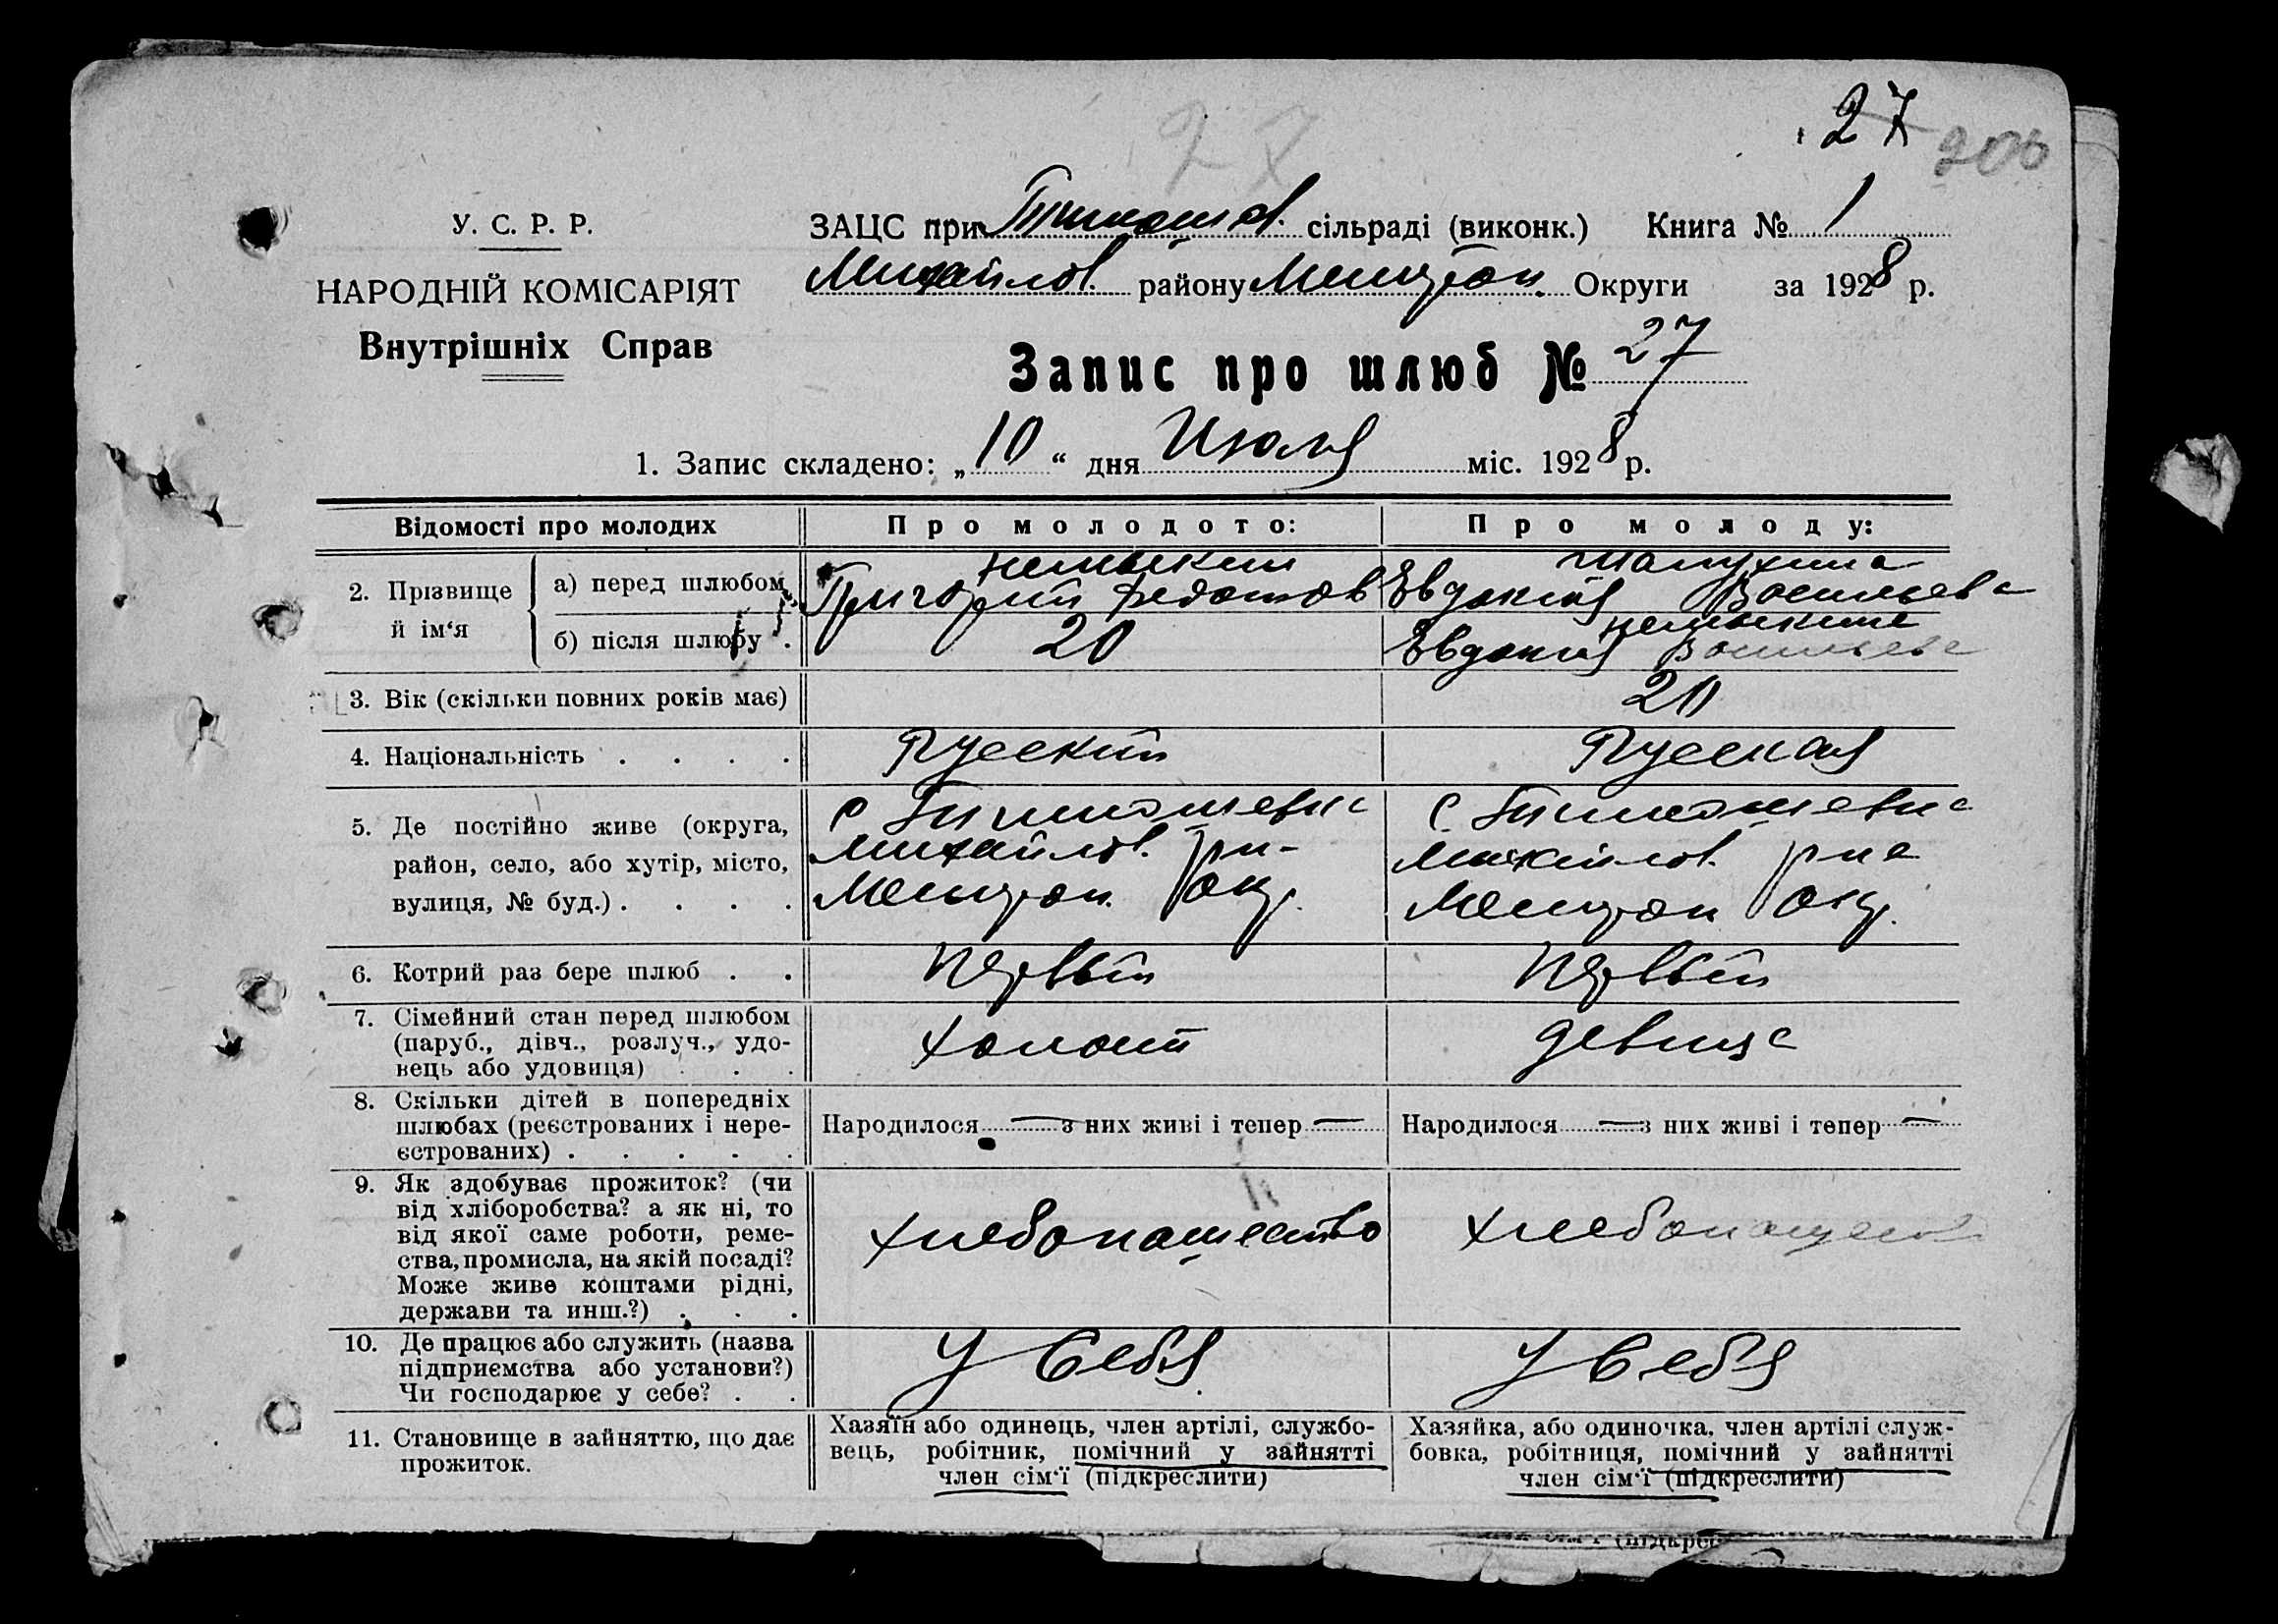 27
27 206
У. С. Р. Р.
НАРОДНІЙ КОМІСАРІЯТ
Внутрішніх Справ
ЗАЦС при Тимошов. сільраді (виконк.) Книга № 1
Михайлов. району Мелитоп. Округи за 1928 р.
Запис про шлюб № 27
1. Запис складено: „10“ дня Июля міс. 1928 р.
Відомості про молодих
Про молодого:
Про молоду:
2. Прізвище й ім‘я
а) перед шлюбом
Григорий Федотов
Евдокия Васильева
б) після шлюбу .
20
Евдокия Васильева
3. Вік (скільки повних років має)
20
4. Національність . . . .
Русский
Русская
5. Де постійно живе (округа,
район, село, або хутір, місто,
вулиця, № буд.) . . . .
с Тимошевка
Михайлов. р-н
Мелитоп. окр.
с. Тимошевка
Михайлов. р-на
Мелитоп окр.
6. Котрий раз бере шлюб . .
Первый
Первый
7. Сімейний стан перед шлюбом
(паруб., дівч., розлуч., удо-
вець або удовиця) . . .
холост
девица
8. Скільки дітей в попередніх
шлюбах (реєстрованих і нере-
єстрованих) . . . . .
Народилося — з них живі і тепер —
Народилося — з них живі і тепер —
9. Як здобуває прожиток? (чи
від хліборобства? а як ні, то
від якої саме роботи, реме-
ства, промисла, на якій посаді?
Може живе коштами рідні,
держави та инш.?) . . .
хлебопашество
хлебопашест
10. Де працює або служить (назва
підприємства або установи?)
Чи господарює у себе? . .
У Себя
У Себя
11. Становище в зайняттю, що дає
прожиток.
Хазяїн або одинець, член артілі, службо-
вець, робітник, помічний у зайнятті
член сім‘ї (підкреслити)
Хазяйка, або одиночка, член артілі служ-
бовка, робітниця, помічний у зайнятті
член сім‘ї (підкреслити)